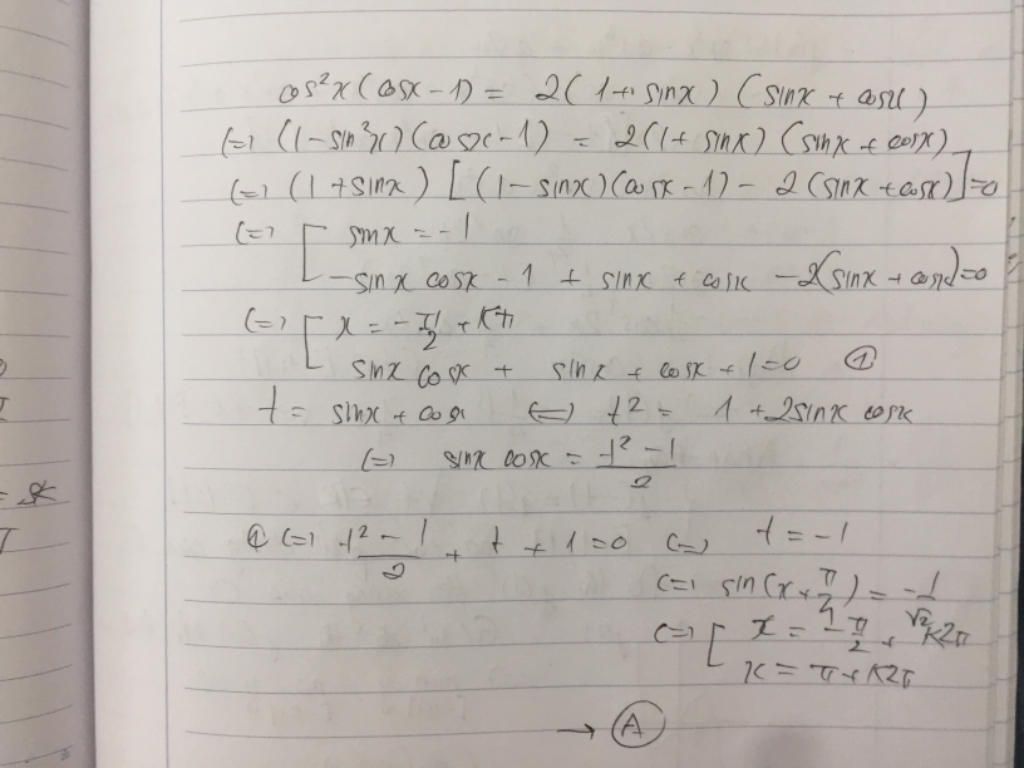 cos²x(cosx-1) = 2(1+sinx)(sinx+cosx)
(=) (1-sin²x)(cosx-1) = 2(1+sinx)(sinx+cosx)
(=) (1+sinx)[(1-sinx)(cosx-1) - 2(sinx+cosx)]=0
(=) [ sinx = -1
-sinx cosx - 1 + sinx + cosx - 2(sinx+cosx)=0
(=) [ x = -π/2 +
sinx cosx + sinx + cosx + 1=0 ①
t = sinx + cosx (=) t² = 1 + 2sinx cosx
(=) sinx cosx = (t²-1)/2
① (=) (t²-1)/2 + t + 1=0 (=) t = -1
(=) sin(x+π/4) = -1/√2
(=) [ x = -π/2 + k2π
x = π + k2π
→ Ⓐ